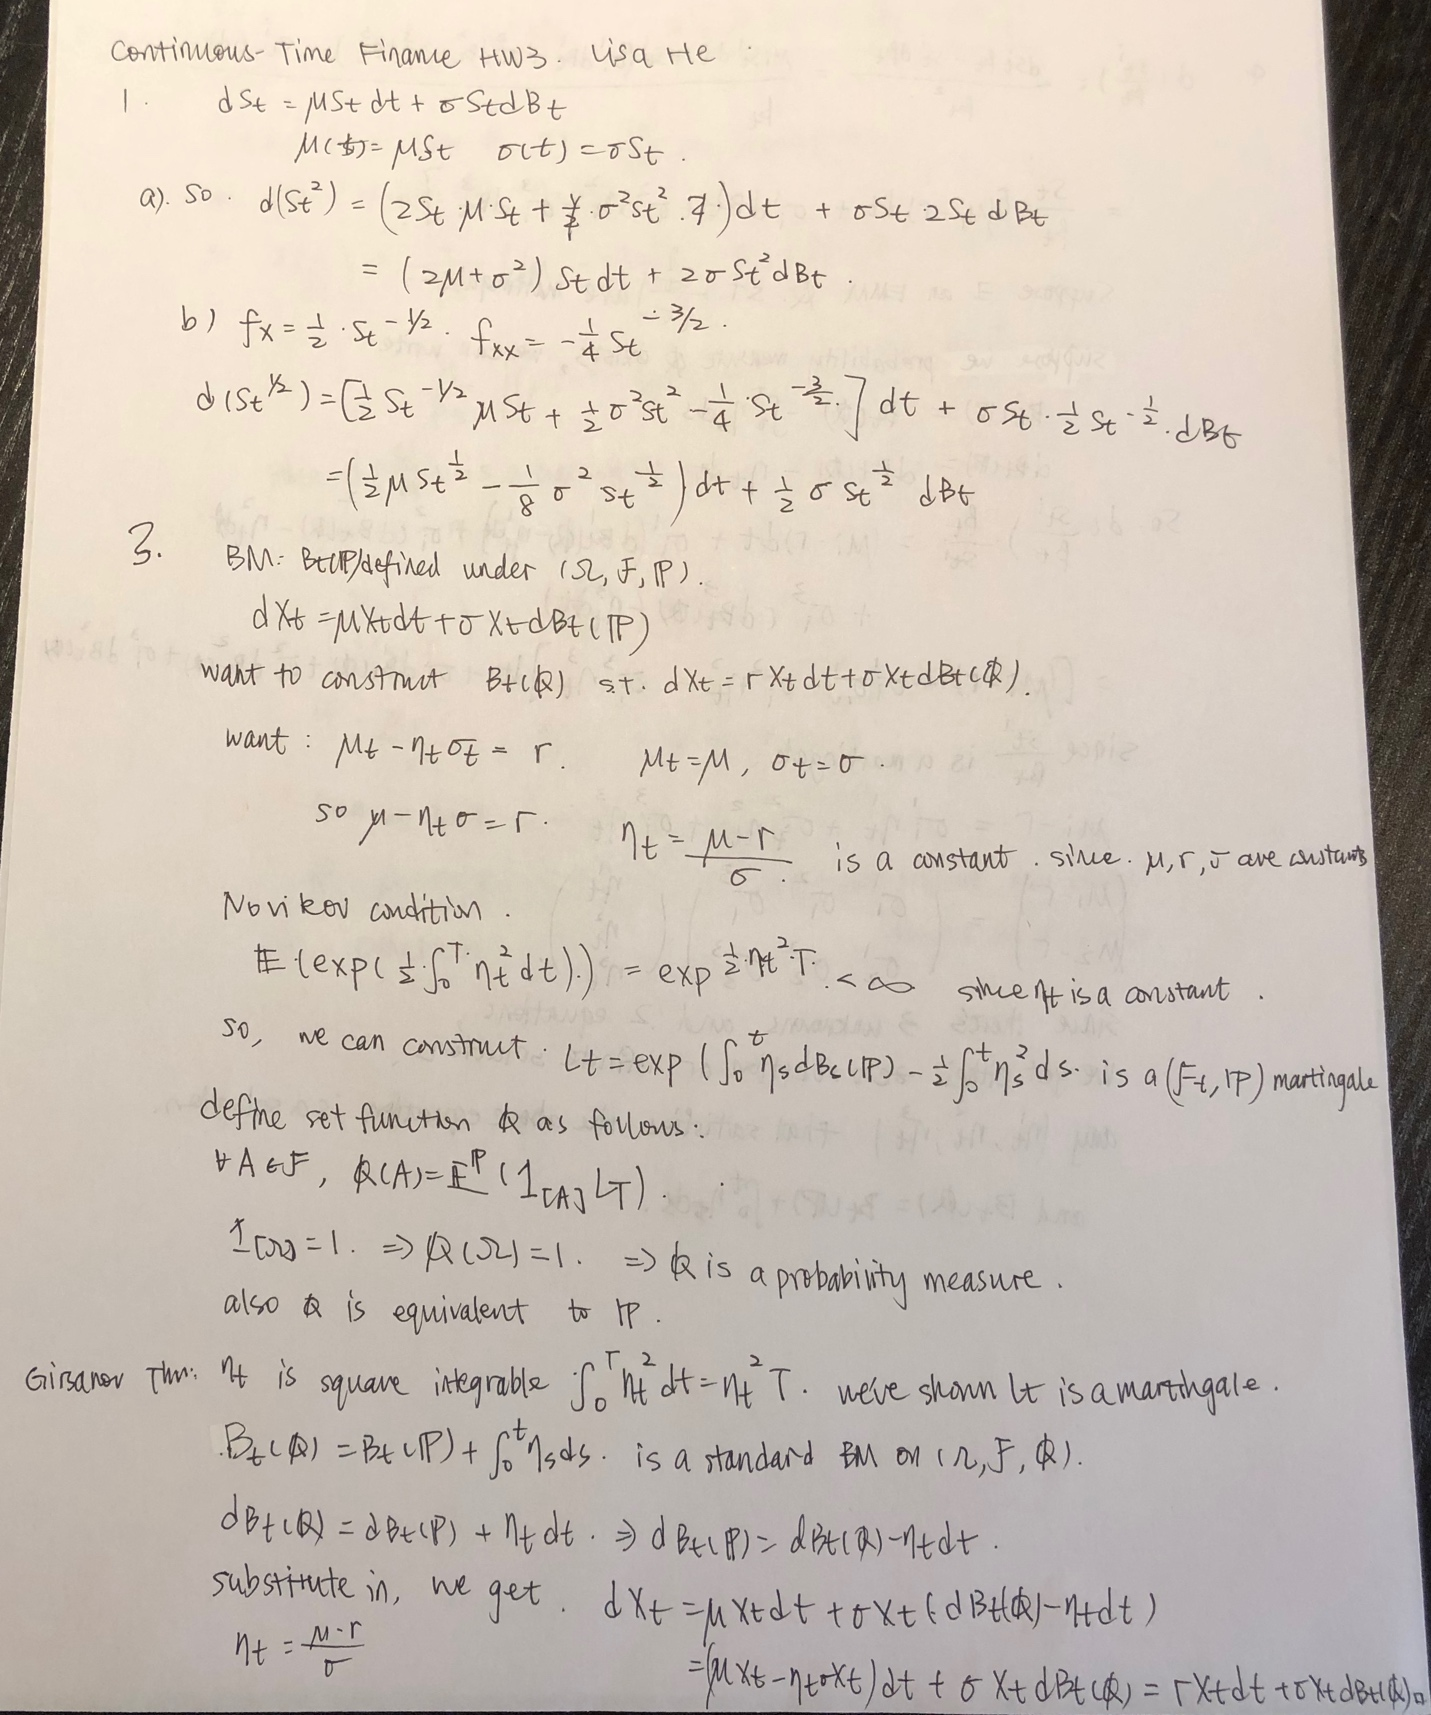 Continuous-Time Finance HW3. Lisa He
1. dSt = μSt dt + σStdBt
μ(t)= μSt σ(t) = σSt.
a). so. d(St²) = (2St·μ·St + ½·σ²St²·2·)dt + σSt·2St dBt
= (2μ+σ²) St dt + 2σSt²dBt.
b) fx = ½·St^-1/2. fxx = -¼ St^-3/2.
d(St^1/2) = [½ St^-1/2 μSt + ½σ²St² -¼·St^-3/2.] dt + σSt·½St^-½.dBt
=(½μSt^½ - ⅛σ²St^½)dt + ½σSt^½ dBt
3. BM: Bt(ℙ) defined under (Ω, F, ℙ).
dXt = μXtdt + σXtdBt(ℙ)
want to construct Bt(ℚ) s.t. dXt = rXtdt+σXtdBt(ℚ).
want: μt - ηtσt = r. μt=μ, σt=σ.
so μ-ηtσ=r. ηt = (μ-r)/σ. is a constant. since. μ,r,σ are constants
Novikov condition.
𝔼(exp(½∫₀ᵀηt²dt).) = exp^½·ηt²T. <∞ since ηt is a constant.
so, we can construct. Lt = exp(∫₀ᵗηsdBs(ℙ) - ½∫₀ᵗηs²ds. is a (Ft, ℙ) martingale
define set function ℚ as follows:
∀A∈F, ℚ(A)=𝔼^ℙ(1[A] LT).
1[Ω]=1. ⇒ ℚ(Ω)=1. ⇒ ℚ is a probability measure.
also ℚ is equivalent to ℙ.
Girsanov Thm: ηt is square integrable ∫₀ᵀηt²dt=ηt²T. we've shown Lt is a martingale.
Bt(ℚ) = Bt(ℙ) + ∫₀ᵗηsds. is a standard BM on (Ω, F, ℚ).
dBt(ℚ) = dBt(ℙ) + ηtdt. ⇒ dBt(ℙ) = dBt(ℚ)-ηtdt.
substitute in, we get. dXt = μXtdt + σXt(dBt(ℚ)-ηtdt)
ηt = (μ-r)/σ
=(μXt-ηtσXt)dt + σXtdBt(ℚ) = rXtdt+σXtdBt(ℚ)□